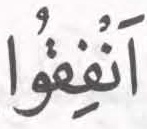 اَنْفِقُوْا